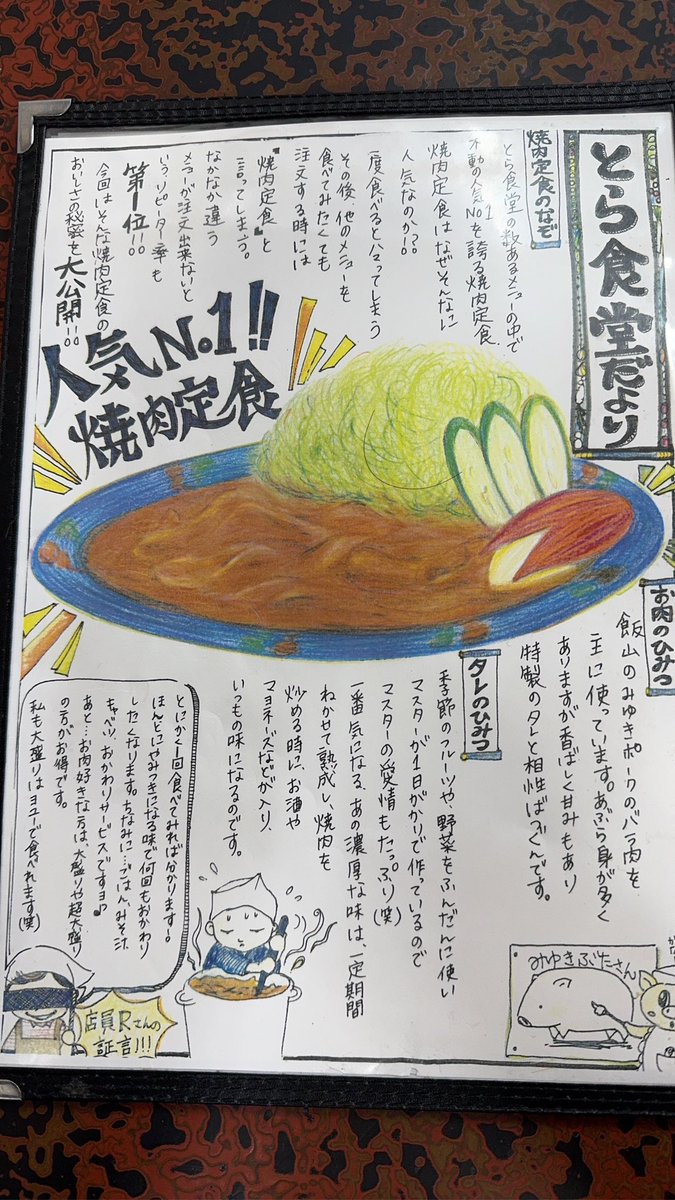 とら食堂だより
焼肉定食のなぞ
とら食堂の数あるメニューの中で
不動の人気No.1を誇る焼肉定食。
焼肉定食はなぜそんなに
人気なのか!?
一度食べるとハマってしまう
その後、他のメニューを
食べてみたくても
注文する時には
『焼肉定食』と
言ってしまう。
なかなか違う
メニューが注文出来ないと
いう、リピーター率も
第1位!!
今回はそんな焼肉定食の
おいしさの秘密を大公開!!
人気No.1!!
焼肉定食
お肉のひみつ
飯山のみゆきポークのバラ肉を
主に使っています。あぶら身が多く
ありますが香ばしく甘みもあり
特製のタレと相性ばつぐんです。
タレのひみつ
季節のフルーツや、野菜をふんだんに使い
マスターが1日がかりで作っているので
マスターの愛情もたっぷり(笑)
一番気になる、あの濃厚な味は、一定期間
ねかせて熟成し、焼肉を
炒める時に、お酒や
マヨネーズなどが入り、
いつもの味になるのです。
とにかく1回食べてみれば分かります!
ほんとにやみつきになる味で何回もおかわり
したくなります。ちなみに…ごはん、みそ汁、
キャベツ、おかわりサービスですョ♪
あと…お肉好きな方は、大盛りや超大盛り
の方がお得です。
私も大盛りはヨユーで食べれます(笑)
店員Rさんの
証言!!!
みゆきぶたさん